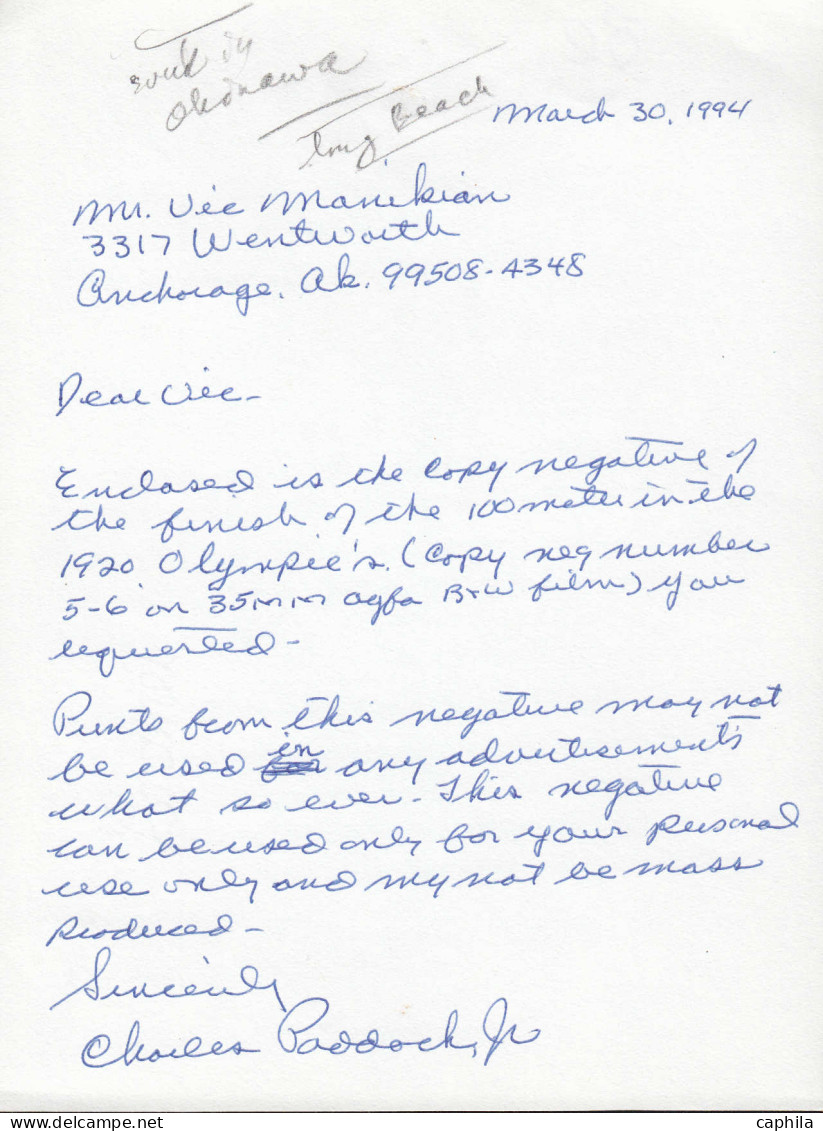 in
Okinawa
Long Beach
March 30, 1994
Mr. Vic Manikian
3317 Wentworth
Anchorage, Ak. 99508-4348
Dear Vic-
Enclosed is the copy negative of
the finish of the 100 meter in the
1920 Olympic's. (Copy neg number
5-6 on 35mm agfa B+W film) you
requested-
Prints from this negative may not
be used in any advertisements
what so ever. This negative
can be used only for your personal
use only and my not be mass
produced-
Sincerely
Charles Paddock, Jr
www.delcampe.net
caphila